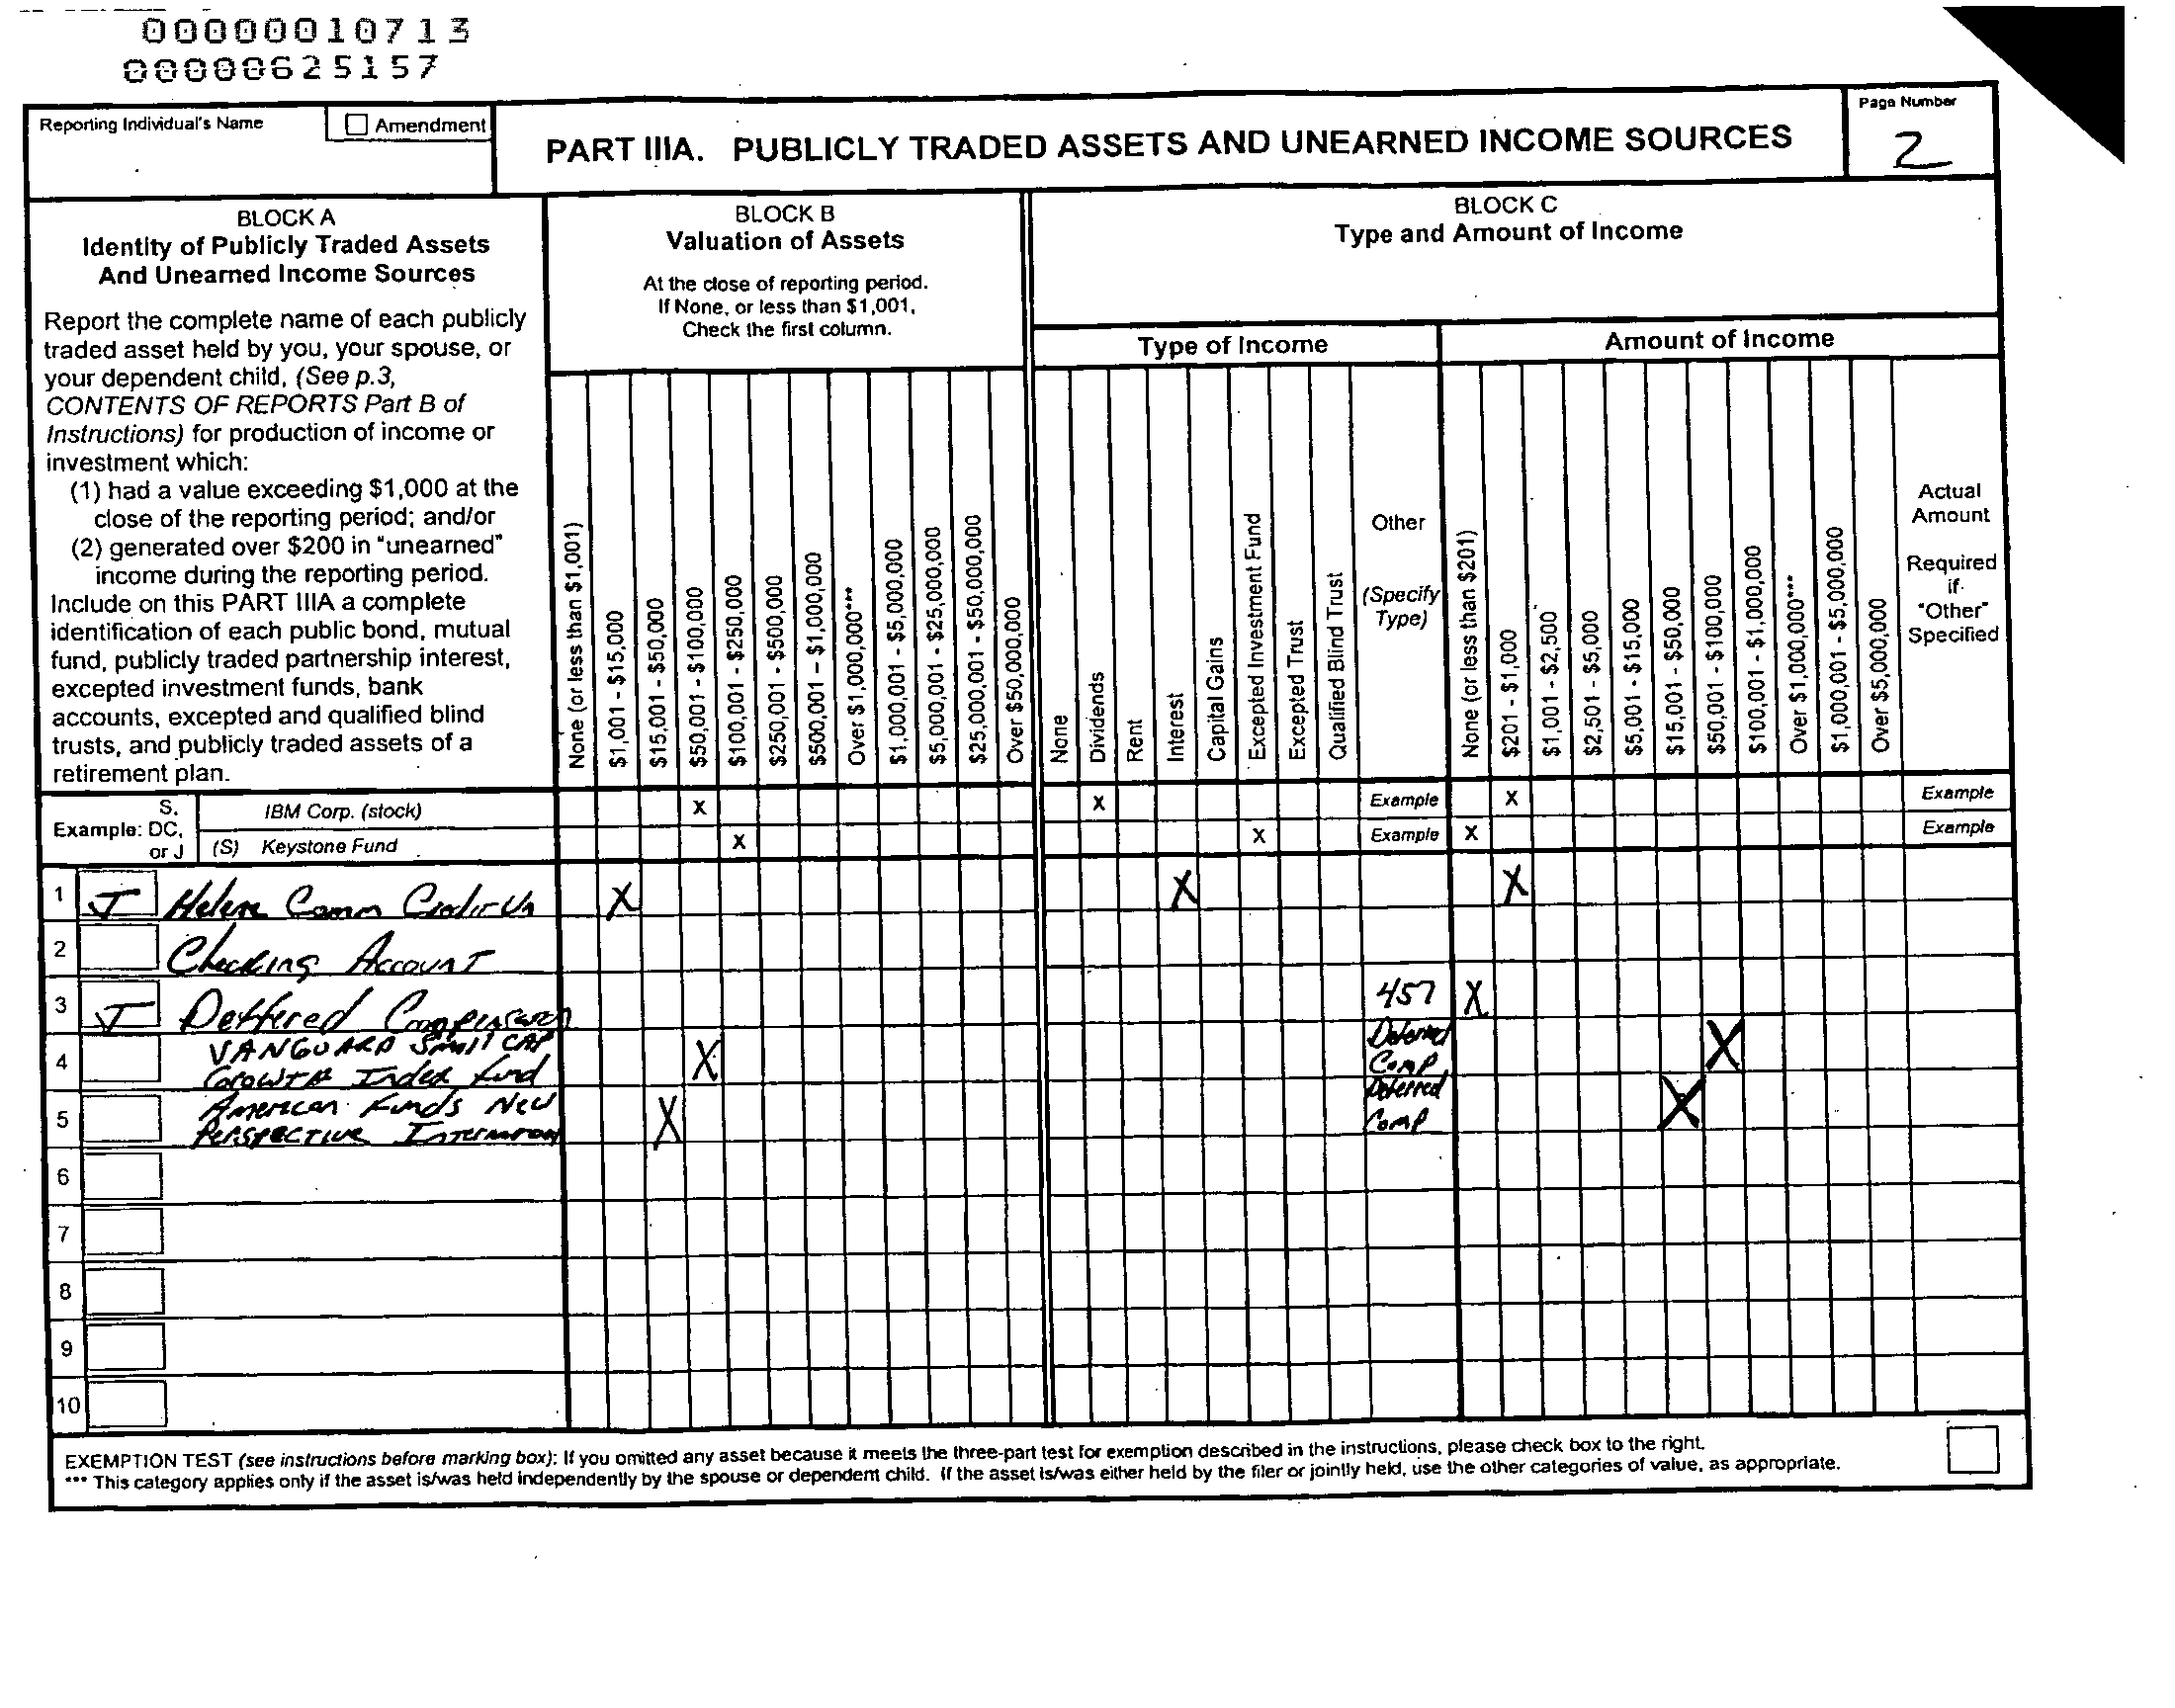 00000010713
00000625157
Reporting Individual's Name
Amendment
PART IIIA. PUBLICLY TRADED ASSETS AND UNEARNED INCOME SOURCES
Page Number
2
BLOCK A
Identity of Publicly Traded Assets
And Unearned Income Sources
Report the complete name of each publicly
traded asset held by you, your spouse, or
your dependent child, (See p.3,
CONTENTS OF REPORTS Part B of
Instructions) for production of income or
investment which:
(1) had a value exceeding $1,000 at the
close of the reporting period; and/or
(2) generated over $200 in "unearned"
income during the reporting period.
Include on this PART IIIA a complete
identification of each public bond, mutual
fund, publicly traded partnership interest,
excepted investment funds, bank
accounts, excepted and qualified blind
trusts, and publicly traded assets of a
retirement plan.
BLOCK B
Valuation of Assets
At the close of reporting period.
If None, or less than $1,001,
Check the first column.
None (or less than $1,001)
$1,001 - $15,000
$15,001 - $50,000
$50,001 - $100,000
$100,001 - $250,000
$250,001 - $500,000
$500,001 - $1,000,000
Over $1,000,000***
$1,000,001 - $5,000,000
$5,000,001 - $25,000,000
$25,000,001 - $50,000,000
Over $50,000,000
BLOCK C
Type and Amount of Income
Type of Income
None
Dividends
Rent
Interest
Capital Gains
Excepted Investment Fund
Excepted Trust
Qualified Blind Trust
Other
(Specify
Type)
Amount of Income
None (or less than $201)
$201 - $1,000
$1,001 - $2,500
$2,501 - $5,000
$5,001 - $15,000
$15,001 - $50,000
$50,001 - $100,000
$100,001 - $1,000,000
Over $1,000,000***
$1,000,001 - $5,000,000
Over $5,000,000
Actual
Amount
Required
if
"Other"
Specified
Example: S, DC, or J
IBM Corp. (stock) X X Example X Example
(S) Keystone Fund X X Example X Example
1 J Helena Comm Credit Un X X X
2 Checking Account
3 J Deffered Compensation 457 X
4 VANGUARD Small CAP
Growth Index Fund X Deferred
Comp X
5 American Funds New
Perspective X Deferred
Comp X
6
7
8
9
10
EXEMPTION TEST (see instructions before marking box): If you omitted any asset because it meets the three-part test for exemption described in the instructions, please check box to the right.
*** This category applies only if the asset is/was held independently by the spouse or dependent child. If the asset is/was either held by the filer or jointly held, use the other categories of value, as appropriate.